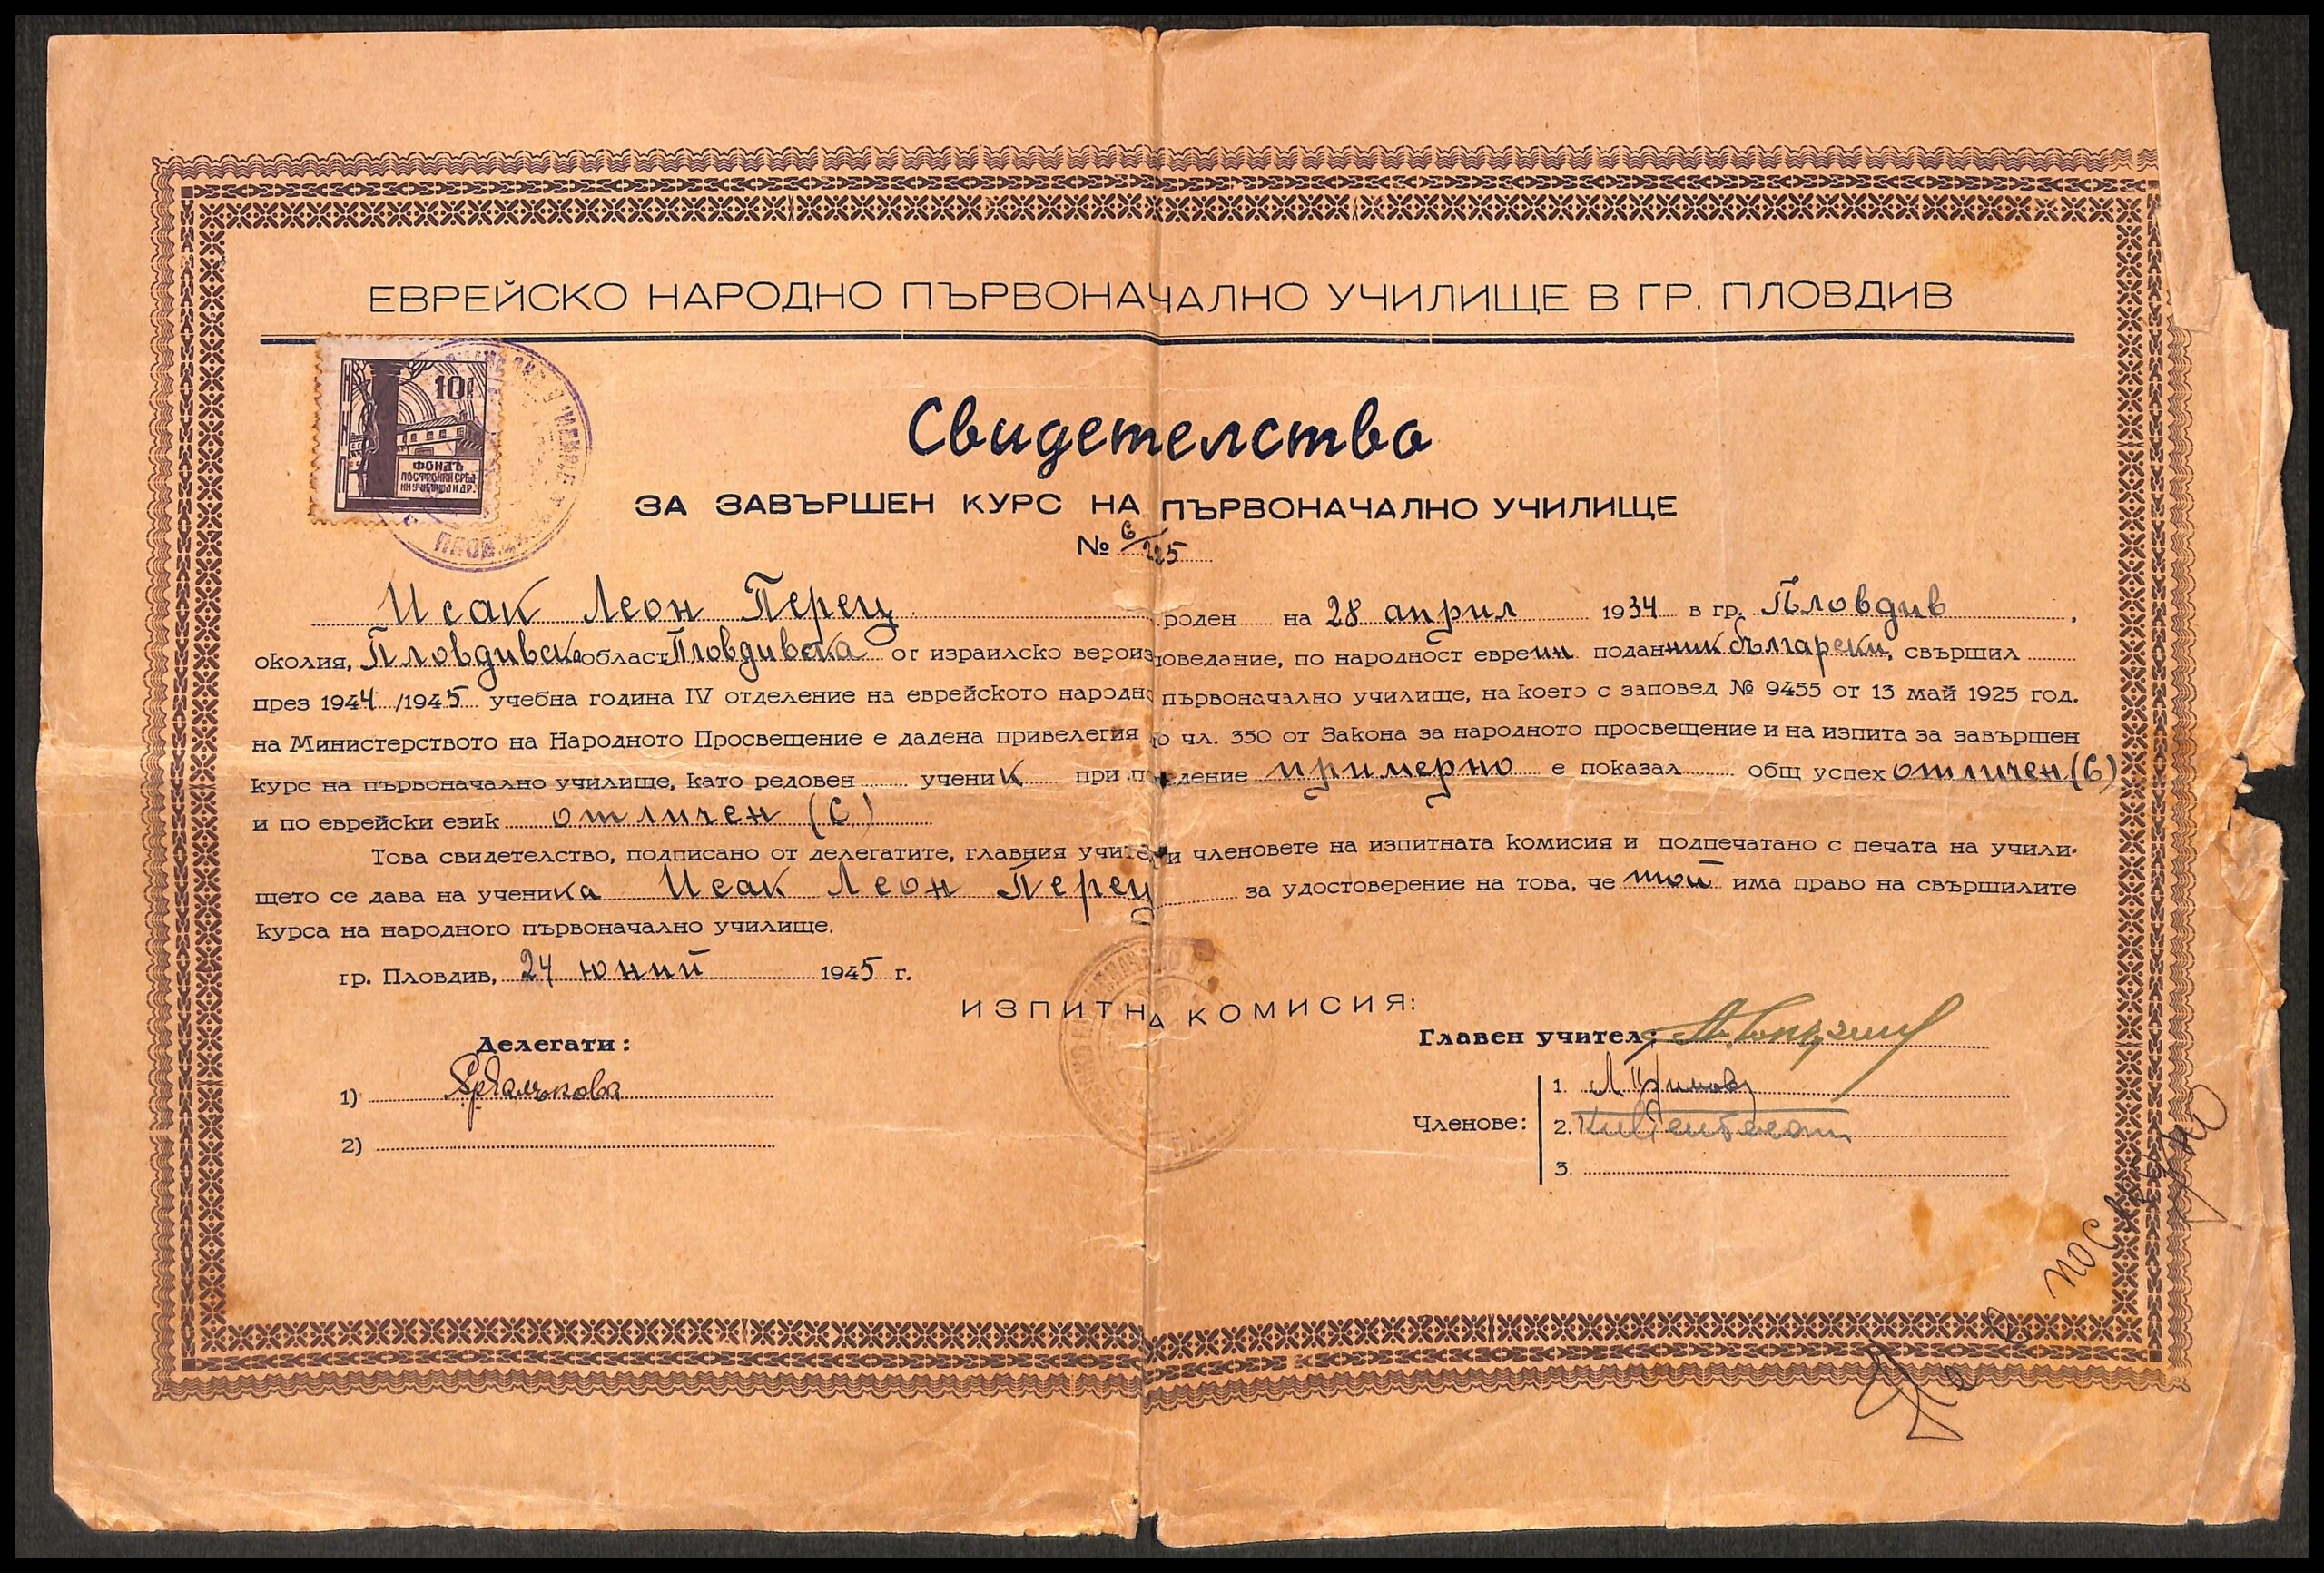 ЕВРЕЙСКО НАРОДНО ПЪРВОНАЧАЛНО УЧИЛИЩЕ В ГР. ПЛОВДИВ
10
ФОНДЪ
ПОСТРОЙКИ СРЕД
НИ УЧИЛИЩА И ДР.
Свидетелство
ЗА ЗАВЪРШЕН КУРС НА ПЪРВОНАЧАЛНО УЧИЛИЩЕ
№ 6/225
Исак Леон Перец роден на 28 април 1934 в гр. Пловдив,
околия, Пловдивска област Пловдивска от израилско вероизповедание, по народност евреин поданник български, свършил
през 1944/1945 учебна година IV отделение на еврейското народно първоначално училище, на което с заповед № 9455 от 13 май 1925 год.
на Министерството на Народното Просвещение е дадена привелегия по чл. 350 от Закона за народното просвещение и на изпита за завършен
курс на първоначално училище, като редовен ученик при поведение примерно е показал общ успех отличен (6)
и по еврейски език отличен (6)
Това свидетелство, подписано от делегатите, главния учител и членовете на изпитната комисия и подпечатано с печата на учили-
щето се дава на ученика Исак Леон Перец за удостоверение на това, че той има право на свършилите
курса на народного първоначално училище.
гр. Пловдив, 24 юний 1945 г.
ИЗПИТНА КОМИСИЯ:
Делегати:
Главен учител:
1)
1.
Членове:
2.
2)
3.